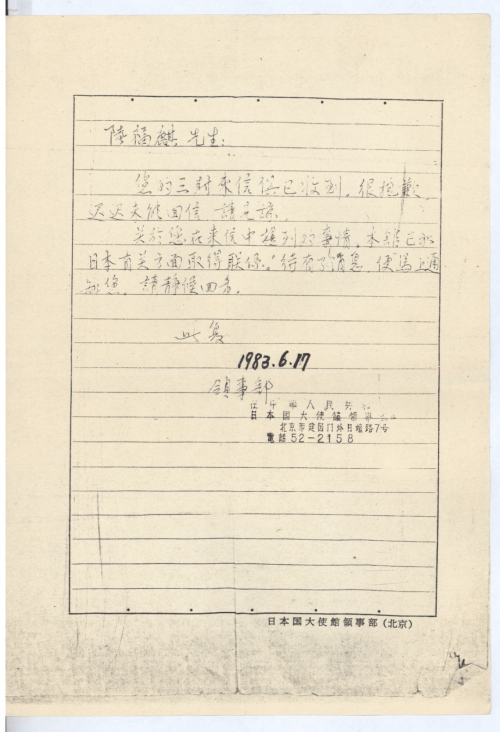 陸福麒 先生:
您的三封来信俱已收到，很抱歉
迟迟未能回信 請見諒。
关於您在来信中提到的事情，本館已和
日本有关方面取得联係。待有了消息，便馬上通
知您，請静候回音。
此复
1983.6.17
領事部
人民共
日本国大使館領事
北京市建国门外日壇路7号
電話 52-2158
日本国大使館領事部（北京）